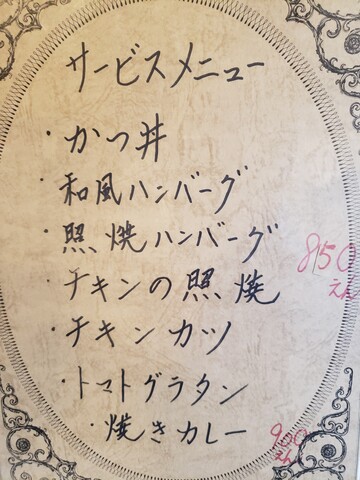 サービスメニュー
・かつ丼
・和風ハンバーグ
・照焼ハンバーグ
850
えん
・チキンの照焼
・チキンカツ
・トマトグラタン
・焼きカレー
900
えん